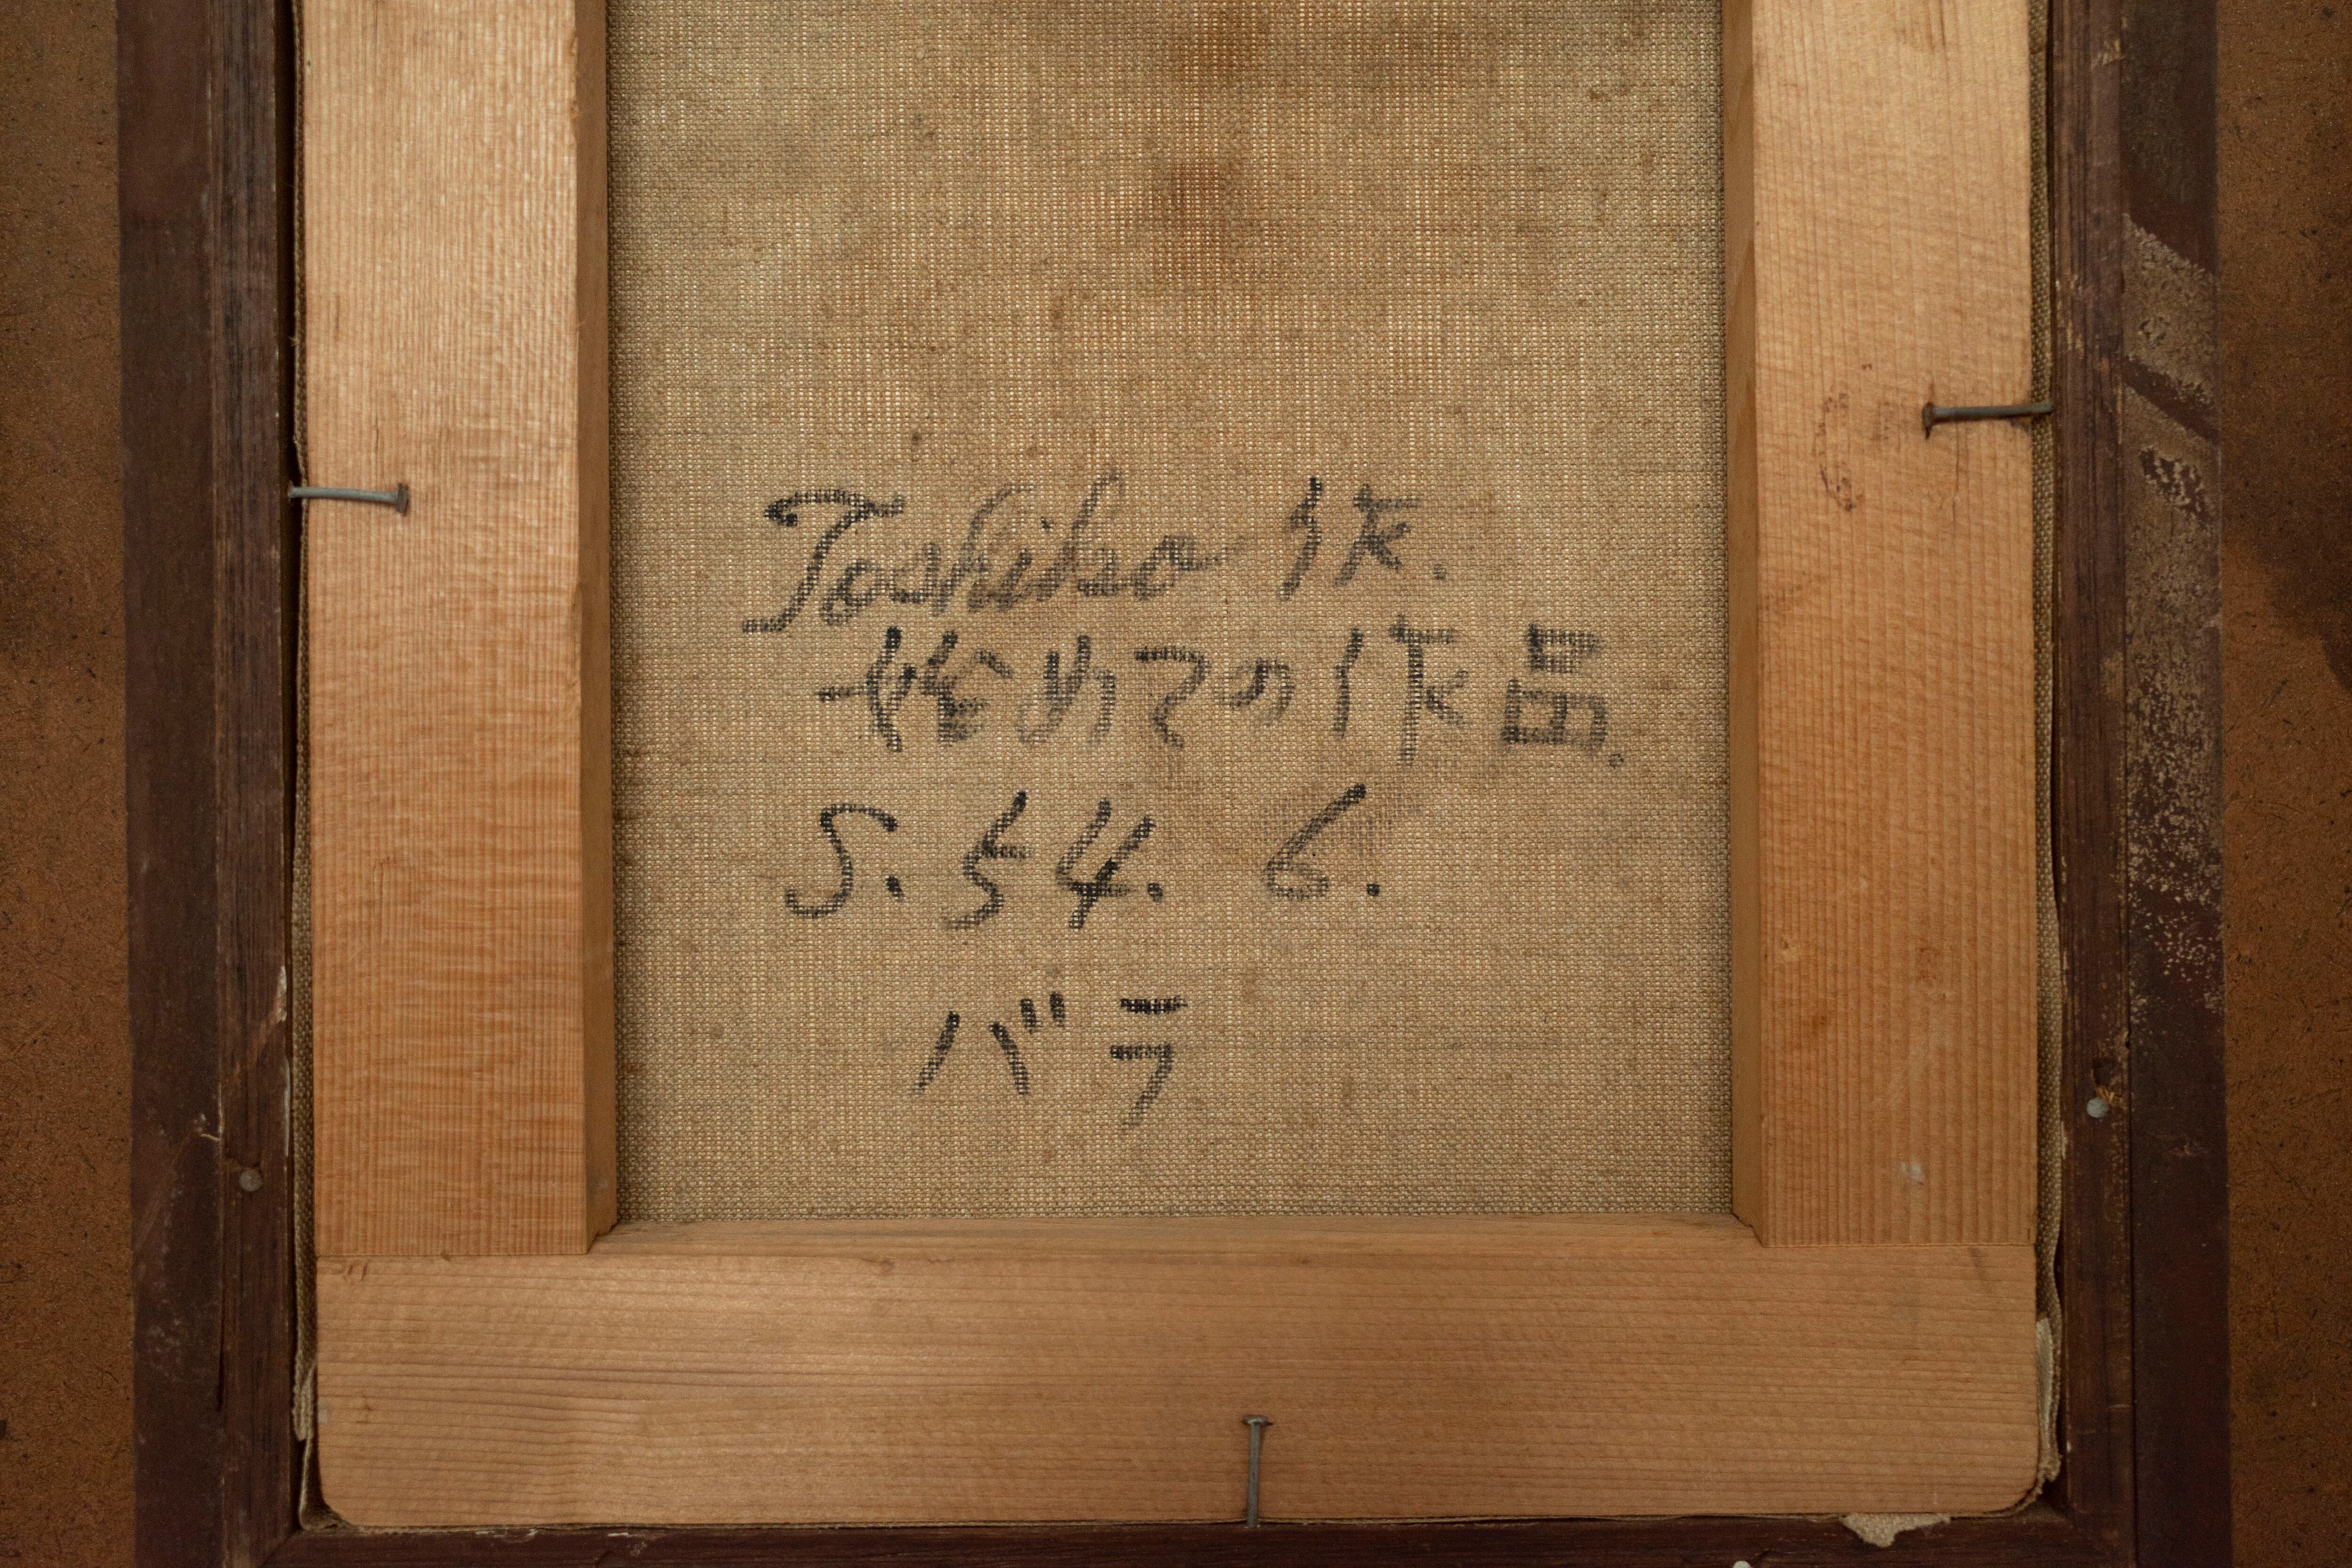 Toshiko 作.
始めての作品.
S. 54. 6.
バラ